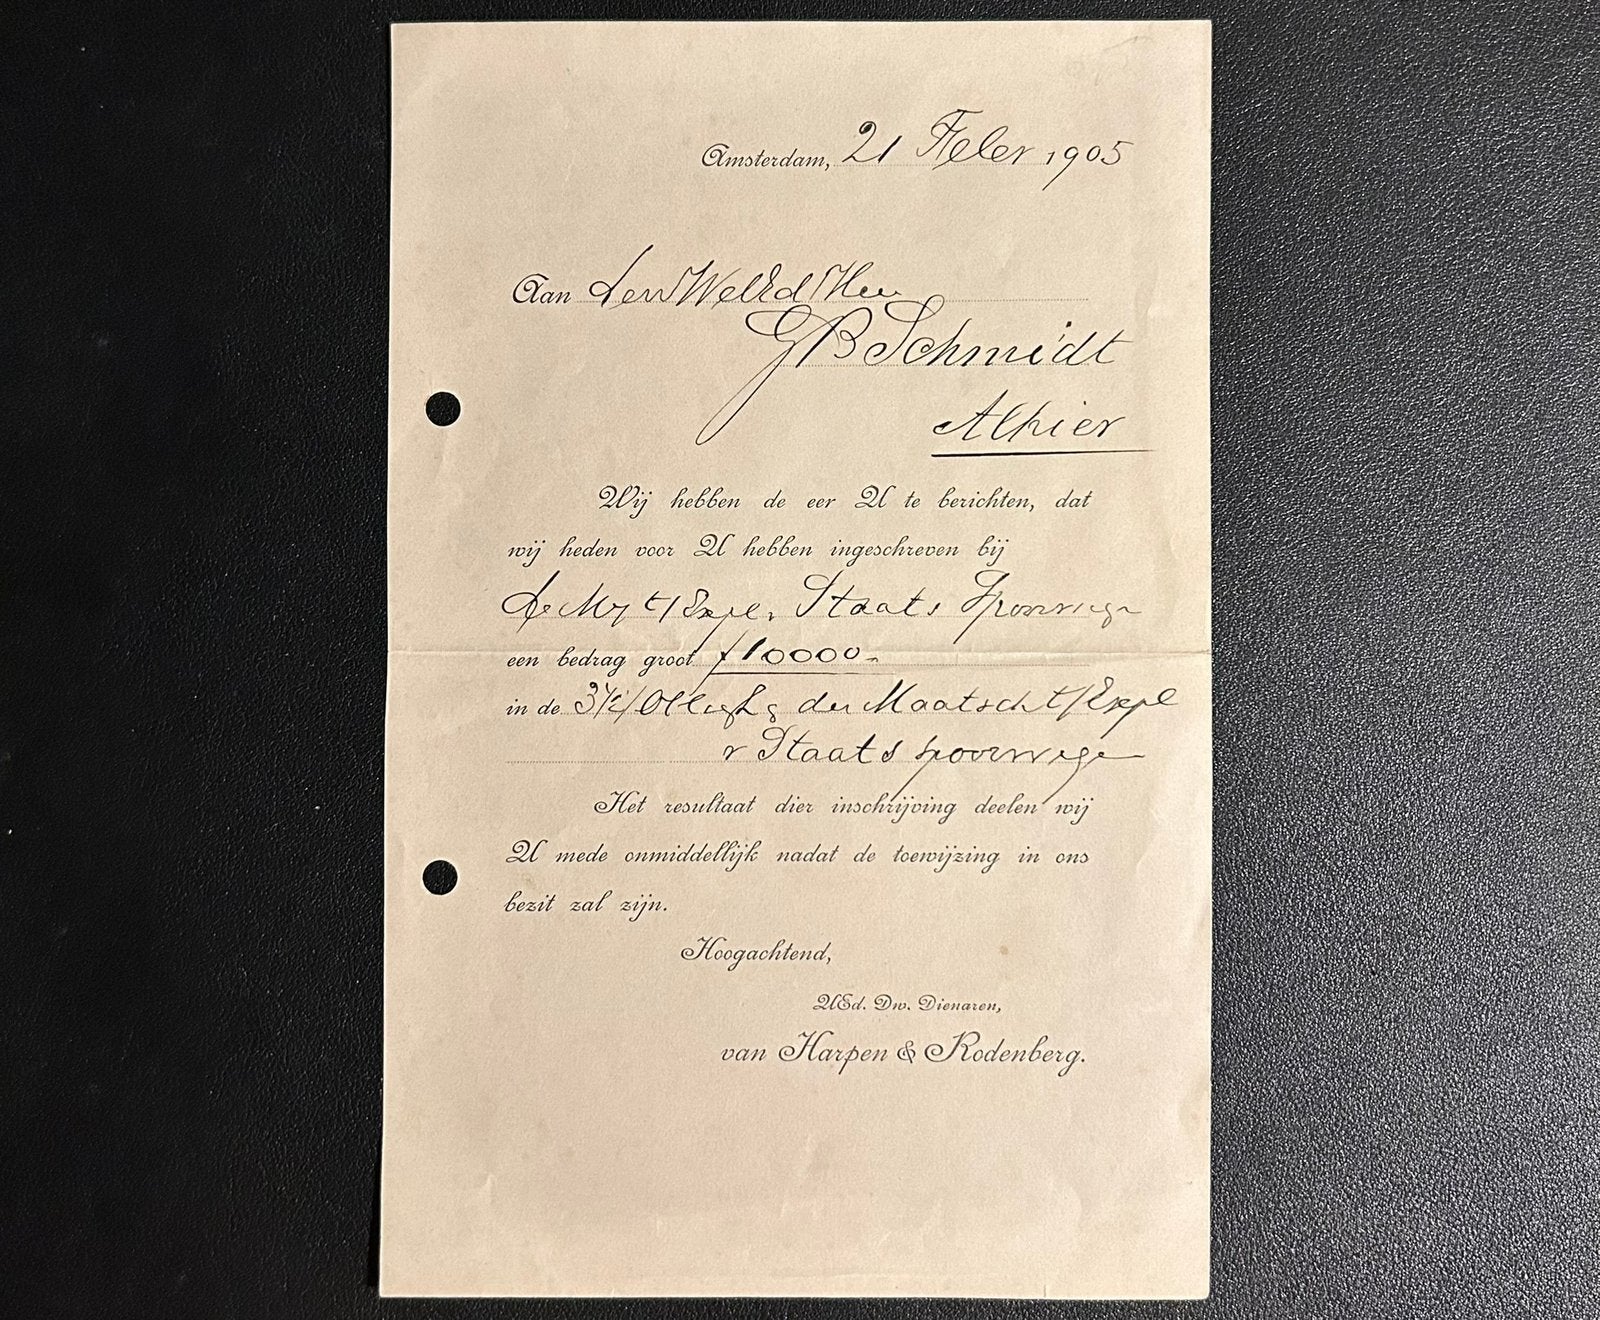 Amsterdam, 21 Feber 1905
Aan den WelEd Heer
GB Schmidt
Alhier
Wij hebben de eer U te berichten, dat
wij heden voor U hebben ingeschreven bij
de My t/Expl. Staats Spoorwegen
een bedrag groot ƒ10000.-
in de 3½ Obligs der Maatsch t/Expl
v Staatsspoorwegen
Het resultaat dier inschrijving deelen wij
U mede onmiddellijk nadat de toewijzing in ons
bezit zal zijn.
Hoogachtend,
UEd. Dw. Dienaren,
van Harpen & Rodenberg.